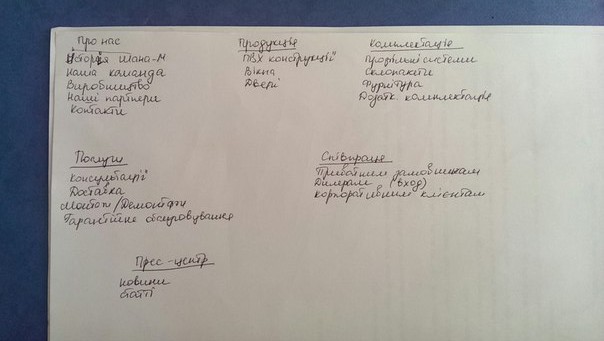 Про нас
Історія Шана-М
Наша команда
Виробництво
Наші партнери
Контакти
Продукція
ПВХ конструкції
Вікна
Двері
Комплектація
Профільні системи
Склопакети
Фурнітура
Додатк. комплектація
Послуги
Консультації
Доставка
Монтаж/Демонтаж
Гарантійне обслуговування
Співпраця
Приватним замовникам
Дилерам (вхід)
Корпоративним клієнтам
Прес-центр
Новини
Статті